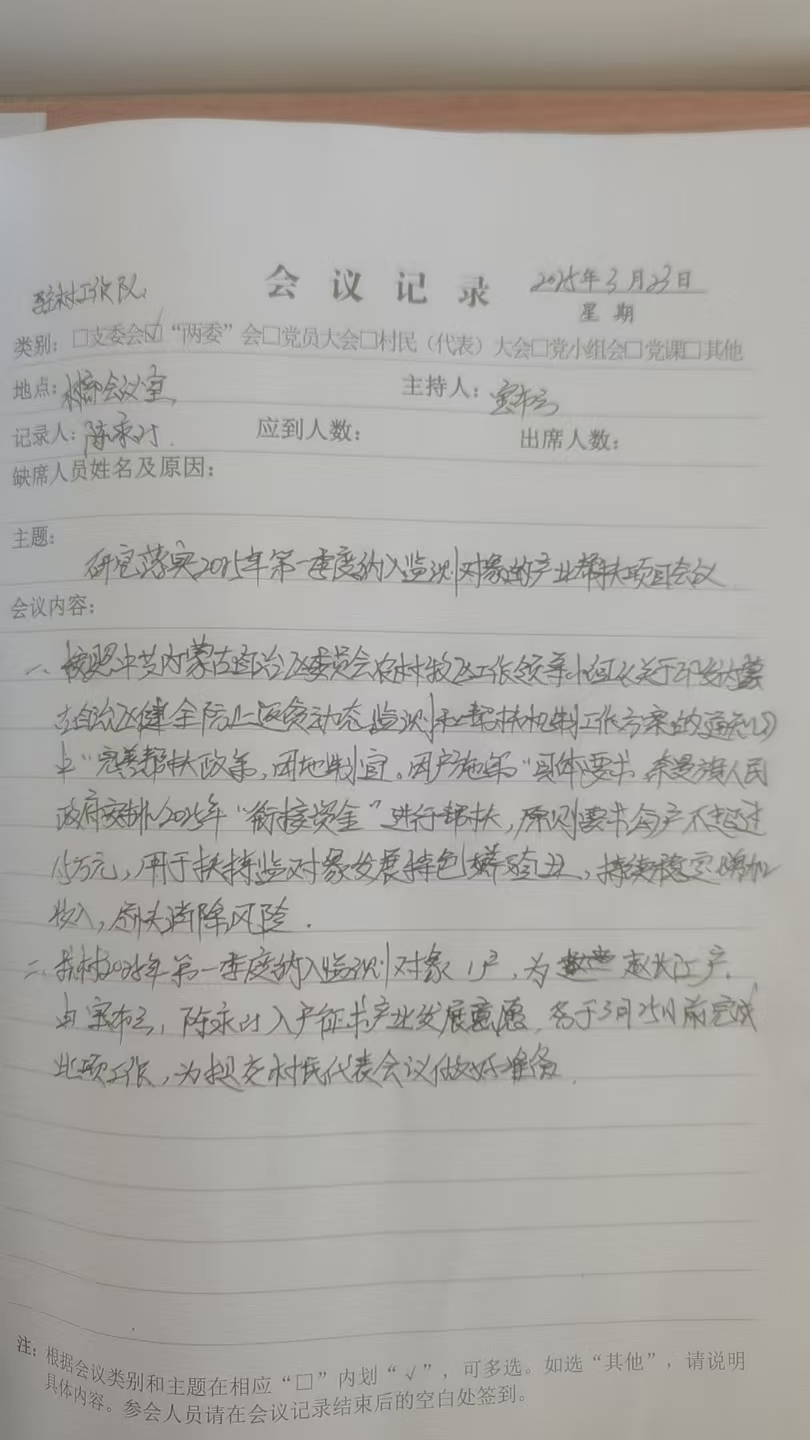 会议记录
2025年3月23日
驻村工作队、
星期
类别：□支委会☑“两委”会□党员大会□村民（代表）大会□党小组会□党课□其他
地点：村部会议室
主持人：宝布仁
记录人：陈永
应到人数：
出席人数：
缺席人员姓名及原因：
主题：
研究落实2025年第一季度纳入监测对象的产业帮扶项目会议
会议内容：
一、按照中共内蒙古自治区委员会农村牧区工作领导小组《关于印发内蒙
古自治区健全防止返贫动态监测和帮扶机制工作方案的通知》
中“完善帮扶政策，因地制宜。因户施策”具体要求，奈曼旗人民
政府安排2025年“衔接资金”进行帮扶，原则要求每户不超过
1.5万元，用于扶持监对象发展特色种养殖业，持续稳定增加
收入，消除风险．
二、我村2025年第一季度纳入监测对象1户，为赵长江户．
由宝布仁，陈永入户征求产业发展意愿，务于3月25日前完成
此项工作，为提交村民代表会议做好准备．
注：根据会议类别和主题在相应“□”内划“√”，可多选。如选“其他”，请说明
具体内容。参会人员请在会议记录结束后的空白处签到。